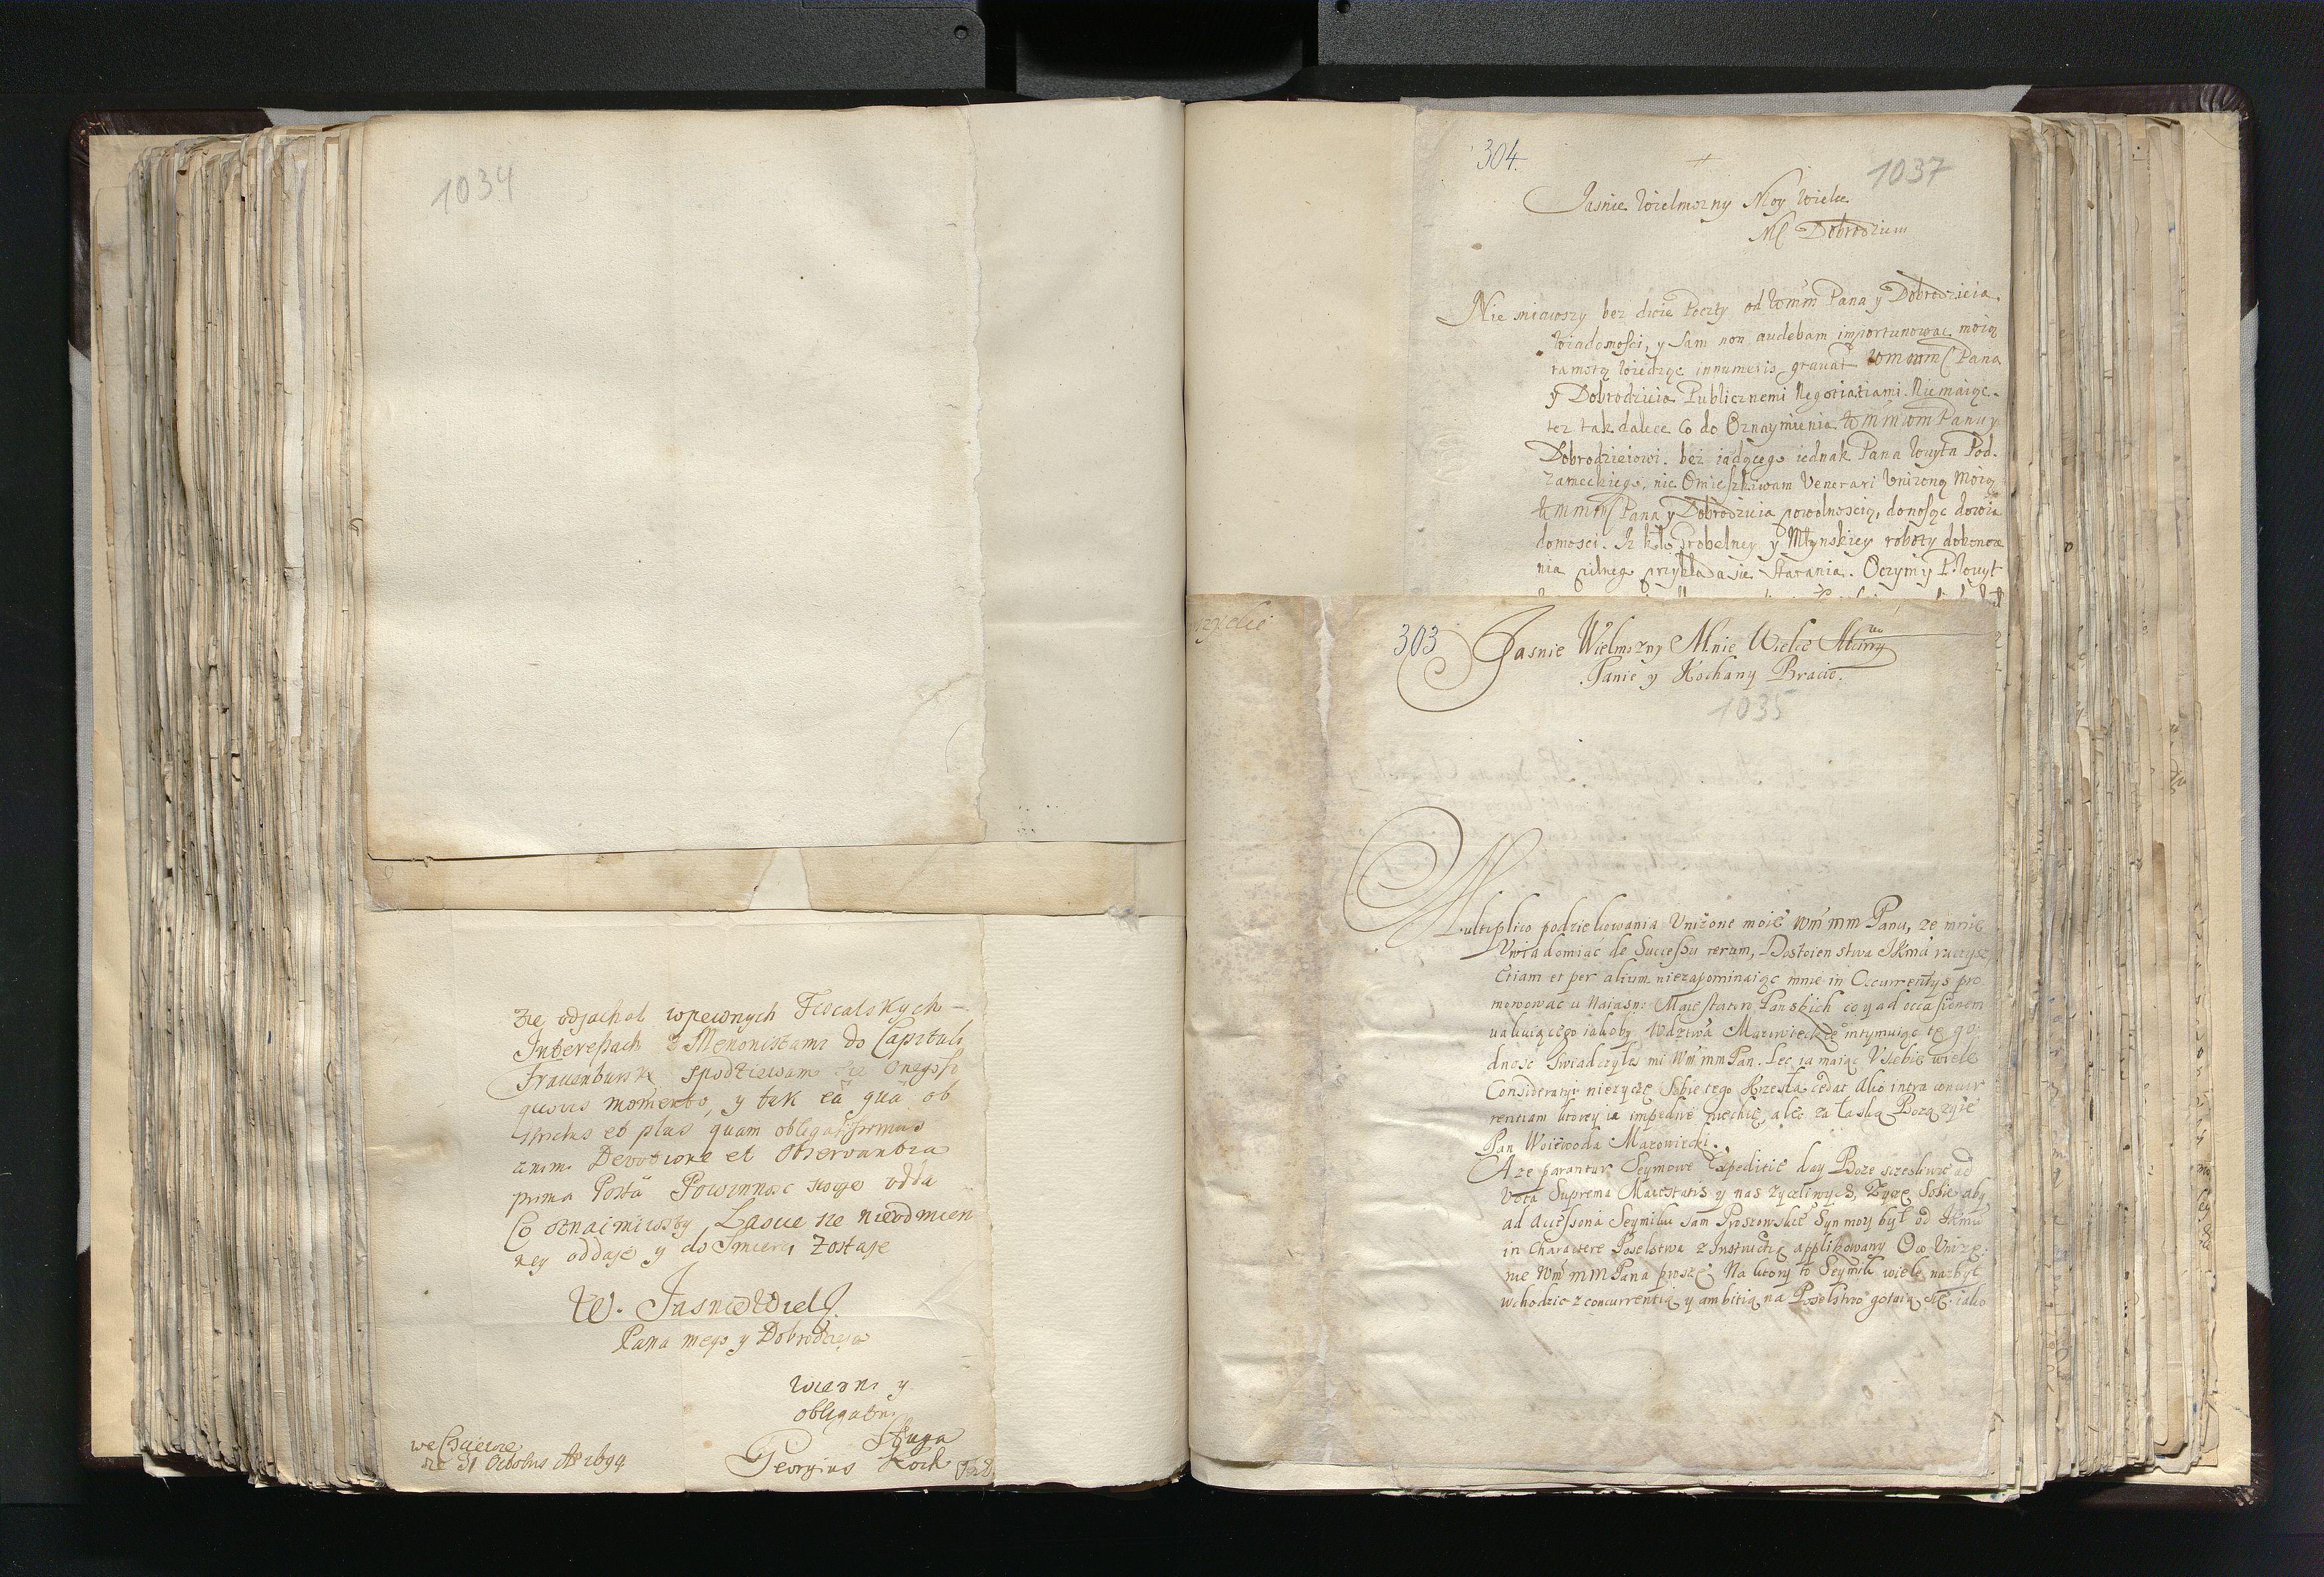 1034
ze odjachal w pewnych Fiscalskych
Interessach z Menonistami do Capituli
Frauenbursk spodziewam sie onegoß
quovis momento, y tak eä quä ob
strictus et plus quam obligatissimus
animi Devotione et Observantia
prima Postä Powinnosc swoje odda
Co oznaimiwszy Lasce ze nieodmien
ney oddaje y do Smierci Zostaje
W. Jasnie Wiel
Pana mego y Dobrodzieja
wierni y
obligatni
Sługa
Georgius Koch
31 Octobris Ao 1694
304.
1037
Jasnie Wielmozny Moy Wielce
Mć Dobrodzieiu
Nie miawszy bez dwie Poczty od Wmm Pana y Dobrodzieia
Wiadomosci, y sam non audebam importunowac moią
ramotą wiedząc innumeris gravat Pana
y Dobrodzieia Publicznemi Negotiatiami. Niemaiąc
tez tak dalece Co do Oznaymienia Panu y
Dobrodzieiowi. bez iadącego iednak Pana Woyta Pod.
zameckiego, nie Omieszkiwam Venerari Unizoną Moią
Pana y Dobrodzieia powolnoscią, donosząc dowia
domosci. Iz koło Grobelney y Młynskiey roboty dokoncze
nia pilnego przykłada sie starania. Oczym y P. Woyt
303
Jasnie Wielmozny Mnie Wielce Mciwy
Panie y Kochany Bracie.
1035
Multiplico podziekowania Unizone moie Wm mm Panu, ze mnie
Uwiadomiać de Successu rerum, Dostoienstwa JKmci raczysz
Etiam et per alium niezapominaiąc mnie in Occurrentys pro
mowowac u Naiasn: Maiestatow Panskich co y ad occasionem
vakuiącego iakoby Wdztwa Mazowieckie intymuiąc tę go
dnosc swiadczyłes mi Wm mm Pan. Lec ia maiąc Usiebie wiele
Consideratyi niezyczę sobie tego Krzesła cedat alió intra concur
rentiam ktorey ia impedire niechcie, ale za łaską Bozą zyie
Pan Woiewoda Mazowiecki.
A ze parantur Seymowe Expeditie day Boze sczesliwie ad
Vota Suprema Maiestatis y nas zyczliwych, Zyczę Sobie aby
ad Accessoria Seymiku sam Proszowskie Syn moy był od JKmci
in Charactere Poselstwa z Instructią applikowany Oco Unize.
nie Wm mm Pana proszę. Na ktory to Seymik wiele nazbyt
wchodzic z concurrentią y ambitią na Poselstwo gotuią się iako